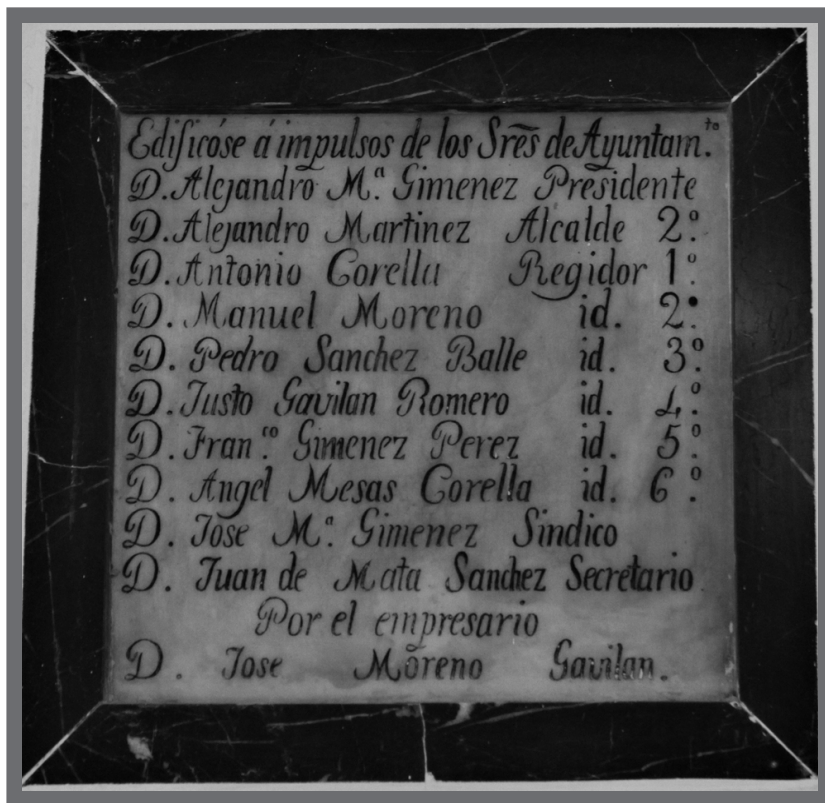 Edificóse á impulsos de los Sres̃ de Ayuntam.to
D. Alejandro M.ª Gimenez Presidente
D. Alejandro Martinez Alcalde 2.º
D. Antonio Corella Regidor 1.º
D. Manuel Moreno id. 2.º
D. Pedro Sanchez Balle id. 3.º
D. Justo Gavilan Romero id. 4.º
D. Fran.co Gimenez Perez id. 5.º
D. Angel Mesas Corella id. 6.º
D. Jose M.ª Gimenez Sindico
D. Juan de Mata Sanchez Secretario
Por el empresario
D. Jose Moreno Gavilan.